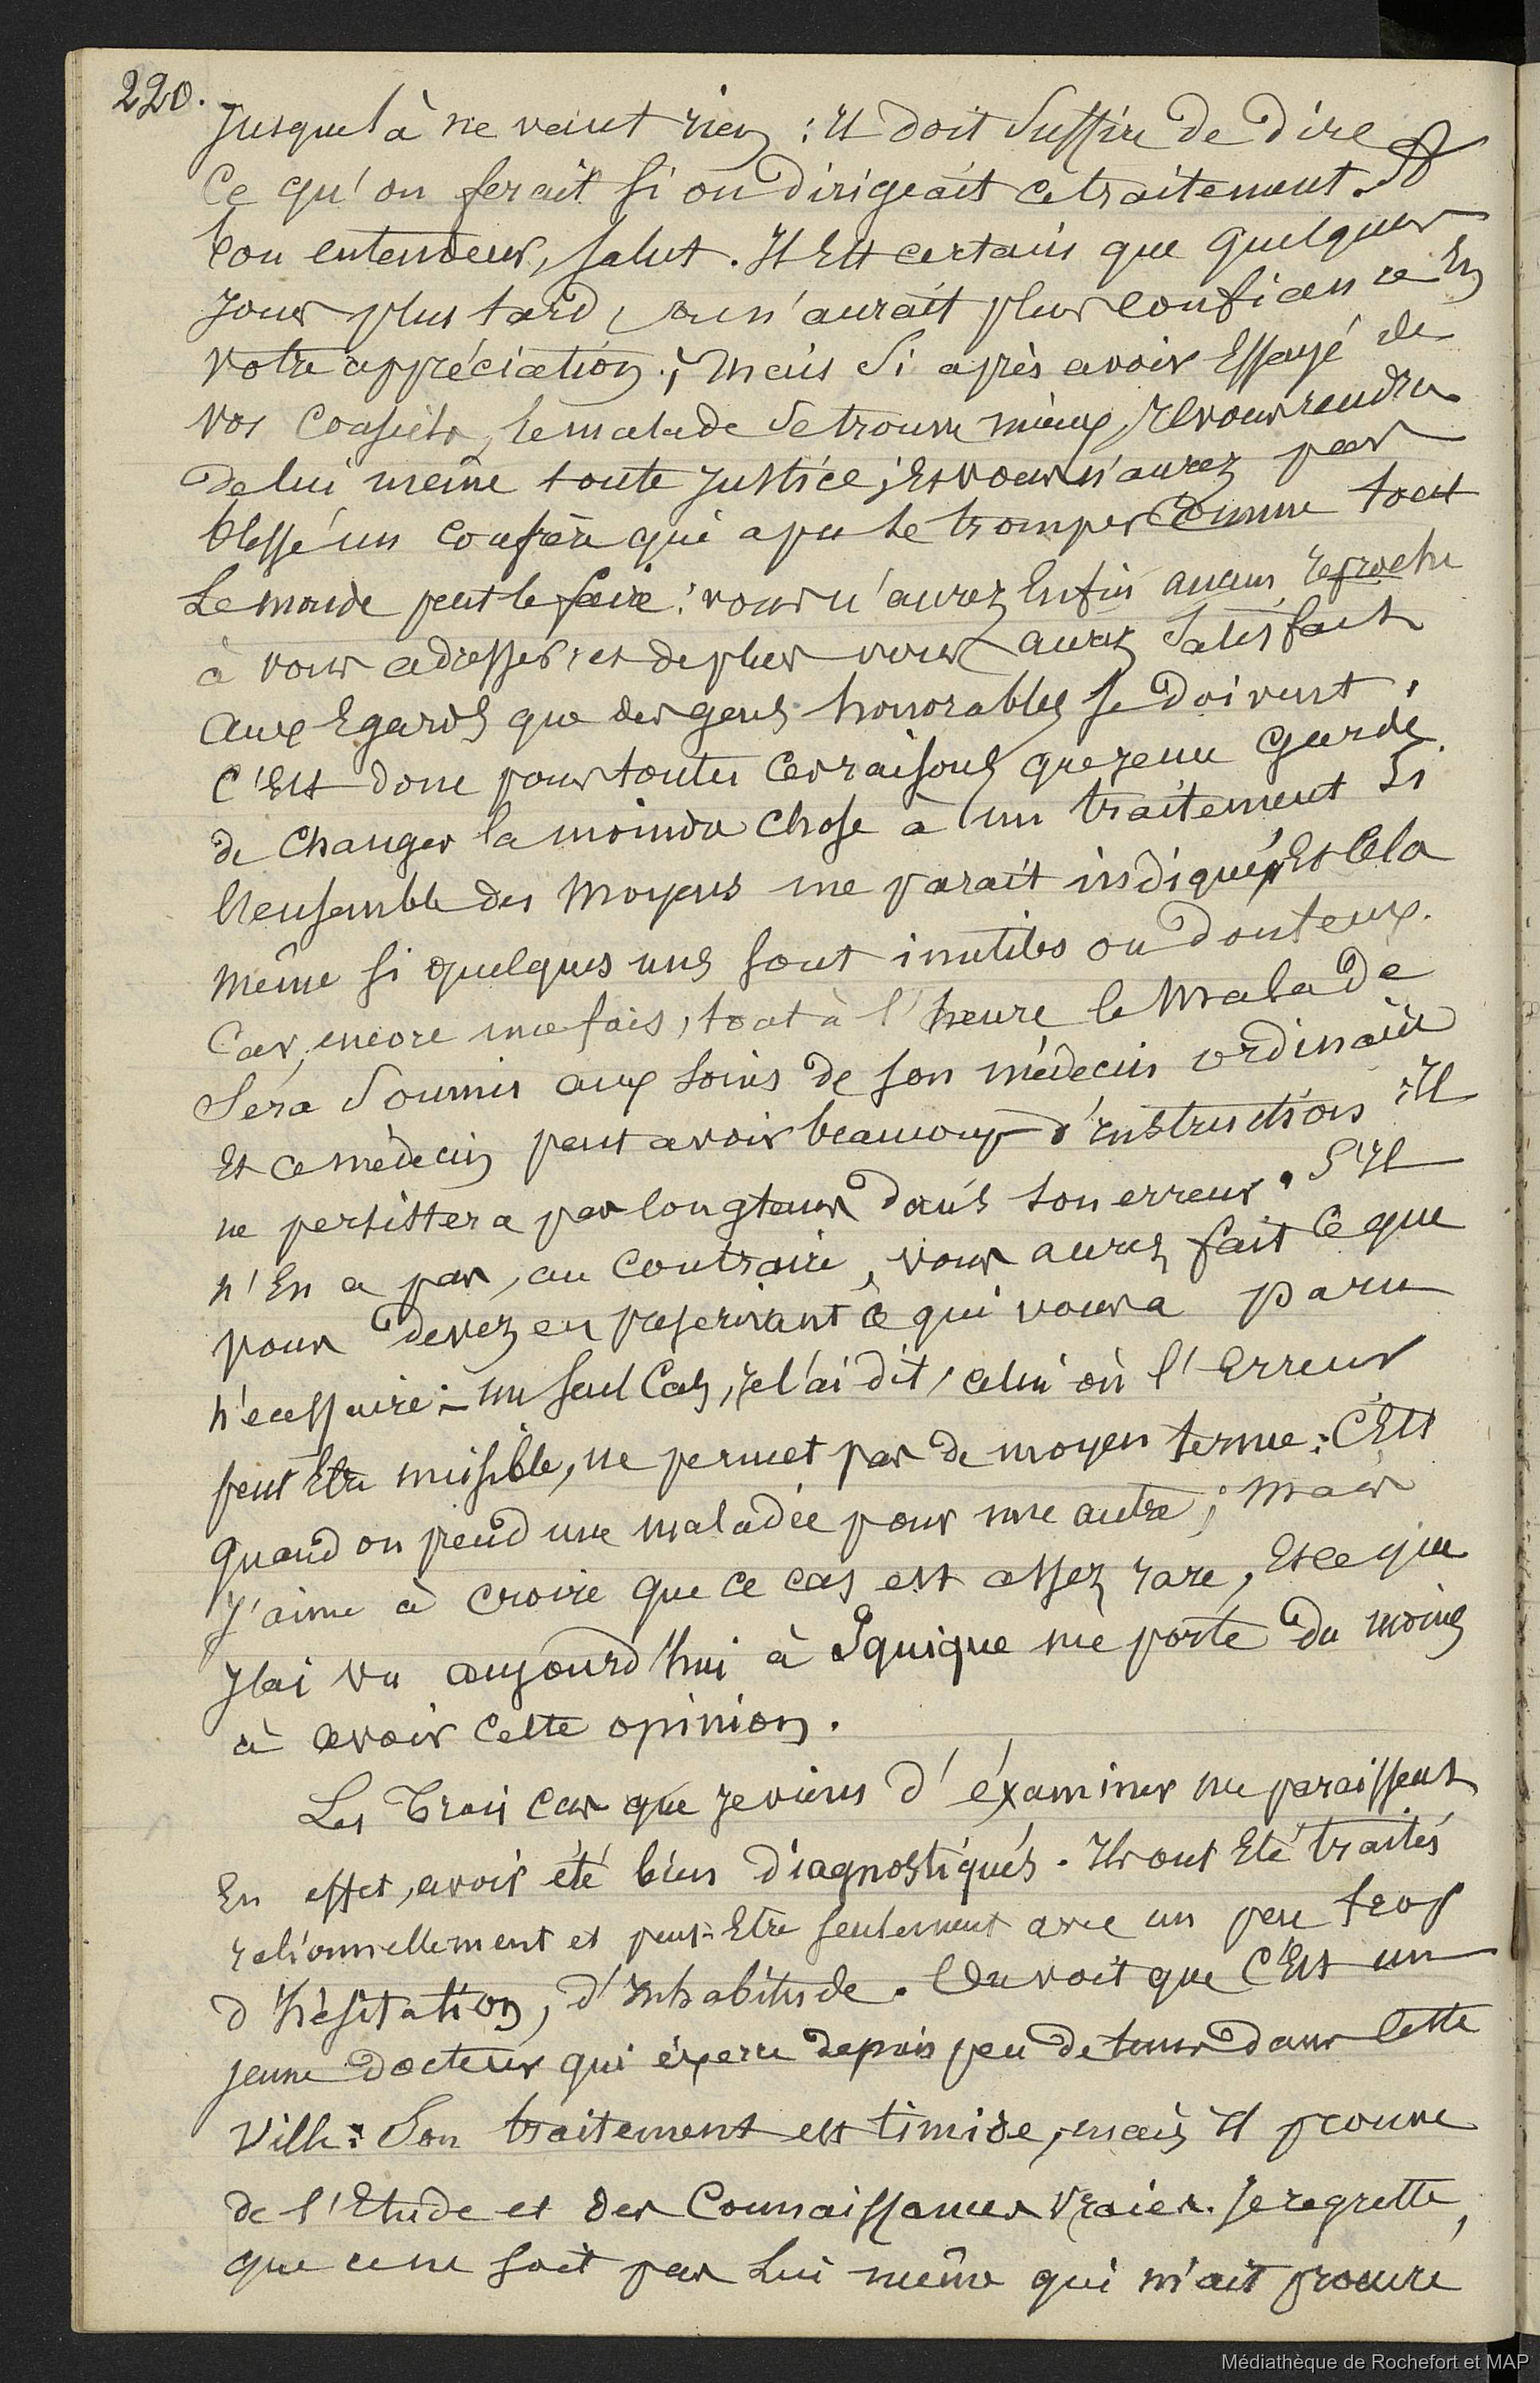 220.
Jusque là ne vaut rien : il doit suffire de dire
Ce qu'on ferait si on dirigeait ce traitement. A
bon entendeur, salut. Il Est certain que quelques
jours plus tard, on n'aurait plus confiance En
votre appréciation ; mais si après avoir Essayé de
vos conseils, le malade se trouve mieux, il vous rendra
de lui même toute justice ; Et vous n'aurez pas
blessé un confrère qui a pu se tromper comme tout
le monde peut le faire : vous n'aurez Enfin aucun reproche
à vous adresser, et de plus vous aurez satisfait
aux Egards que des gens honorables se doivent.
C'Est donc pour toutes ces raisons que je me garde
de changer la moindre chose à un traitement si
l'ensemble des moyens me parait indiqué, Et cela
même si quelques uns sont inutiles ou douteux.
Car, encore une fois, tout à l'heure le malade
sera soumis aux soins de son médecin ordinaire
Et ce médecin peut avoir beaucoup d'instructions : Il
ne persistera pas longtems dans son erreur. S'Il
n'En a pas, au contraire, vous aurez fait ce que
vous devez en prescrivant ce qui vous a paru
nécessaire : un seul cas, je l'ai dit, celui où l'Erreur
peut Etre nuisible, ne permet pas de moyen terme : C'Est
quand on prend une maladie pour une autre ; mais
J'aime à croire que ce cas est assez rare, Et ce que
j'ai vu aujourd'hui à Iquique me porte du moins
à avoir cette opinion.
Les trois cas que je viens d'éxaminer me paraissent
En effet, avoir été bien diagnostiqués. Ils ont Eté traités
rationnellement et peut-Etre seulement avec un peu trop
d'hésitation, d'inhabitude. On voit que C'Est un
jeune docteur qui éxerce depuis peu de tems dans cette
ville : Son traitement est timide, mais il prouve
de l'Etude et des connaissances vraies. Je regrette,
que ce ne soit pas lui même qui m'ait procuré
Médiathèque de Rochefort et MAP